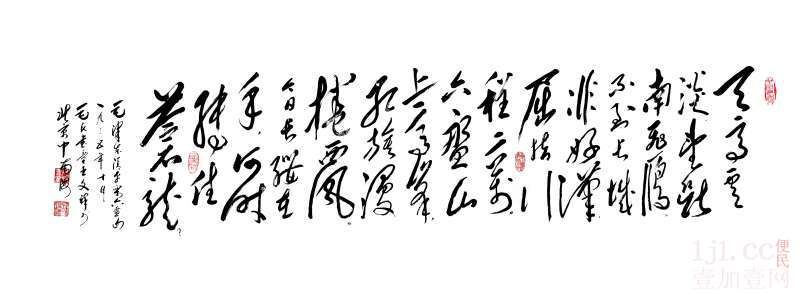 天高云
淡望断
南飞雁
不到长城
非好汉
屈指行
程二万
六盘山
上高峰
红旗漫
捲西风
今日长缨在
手何时
缚住
苍龙
一九三五年十月
北京中南海
1j1.cc
便民
壹加壹网